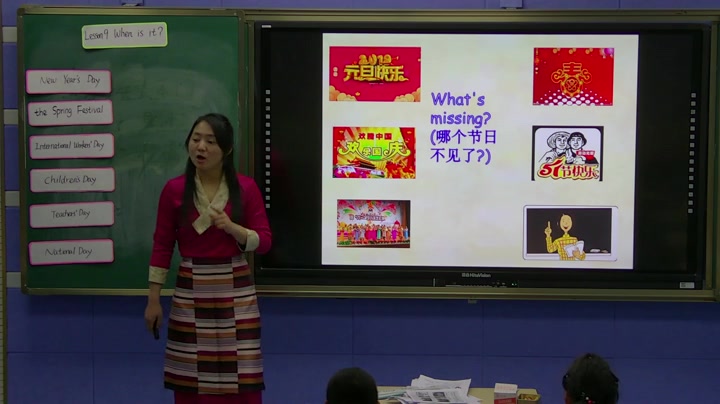 Lesson 9 When is it?
New Year's Day
the Spring Festival
International Workers' Day
Children's Day
Teachers' Day
National Day
元旦快乐
What's
missing?
(哪个节日
不见了?)
欢腾中国
欢度国庆
51节快乐